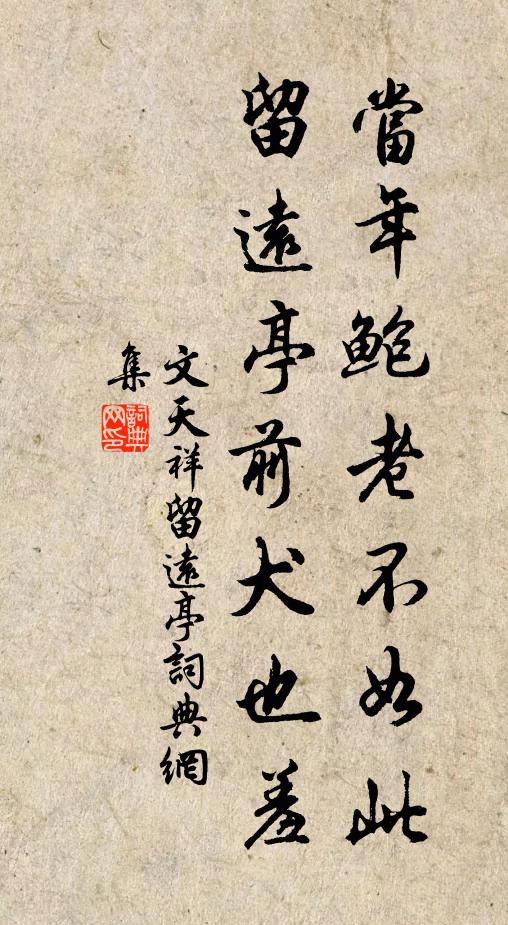 當年鮑老不如此
留遠亭前犬也羞
文天祥留遠亭詞典網
集
詞典
网印